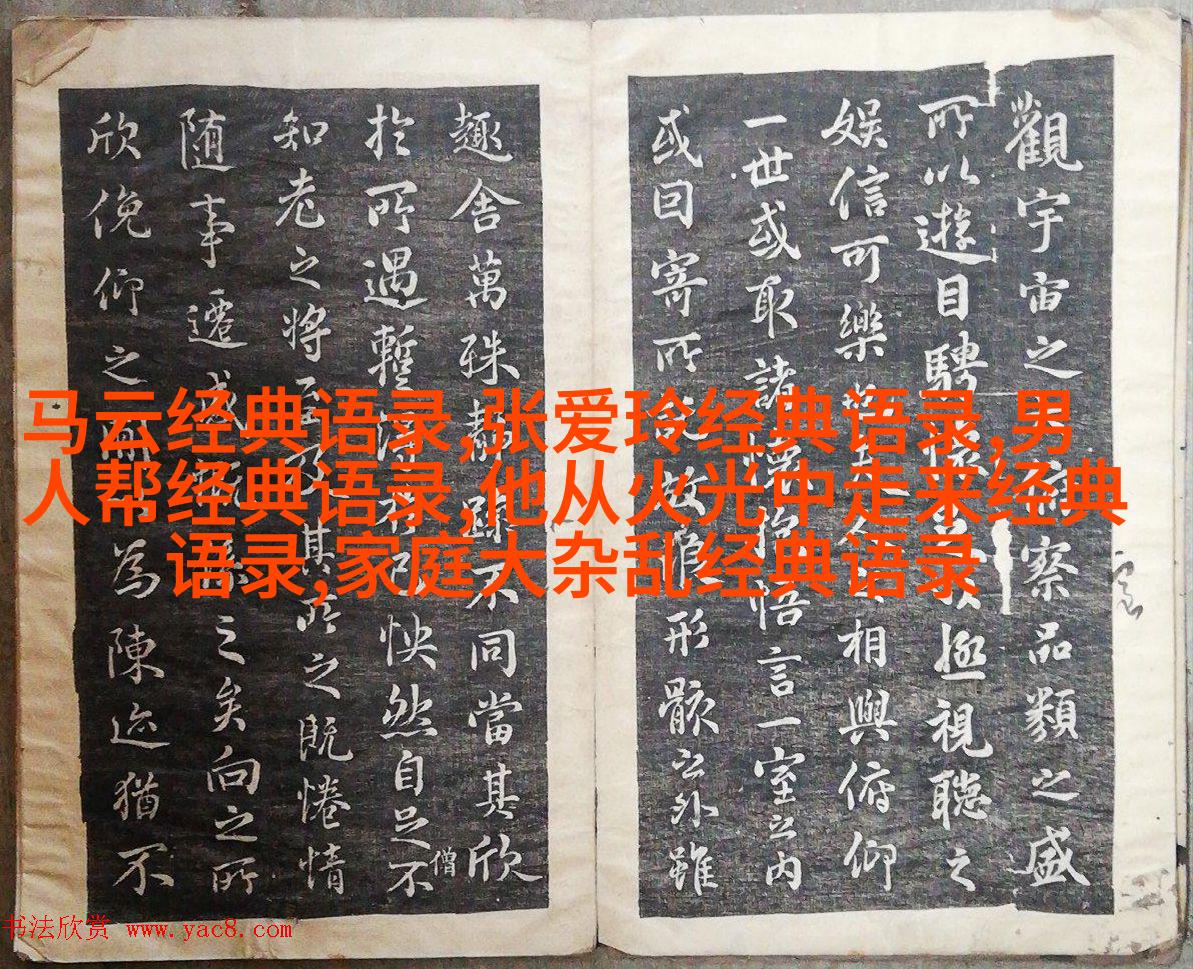 觀宇宙之察品類之盛
所以遊目騁懷極視聽之
娛信可樂相與俯仰
一世或取諸懷抱悟言一室之内
或因寄所放浪形骸之外雖
趣舍萬殊靜躁不同當其欣
於所遇蹔得怏然自足不
僧
知老之將至及其所之既惓情
随事遷感係之矣向之所
欣俛仰之閒為陳迹猶不
马云经典语录,张爱玲经典语录,男
人帮经典语录,他从火光中走来经典
语录,家庭大杂乱经典语录
书法欣赏 www.yac8.com